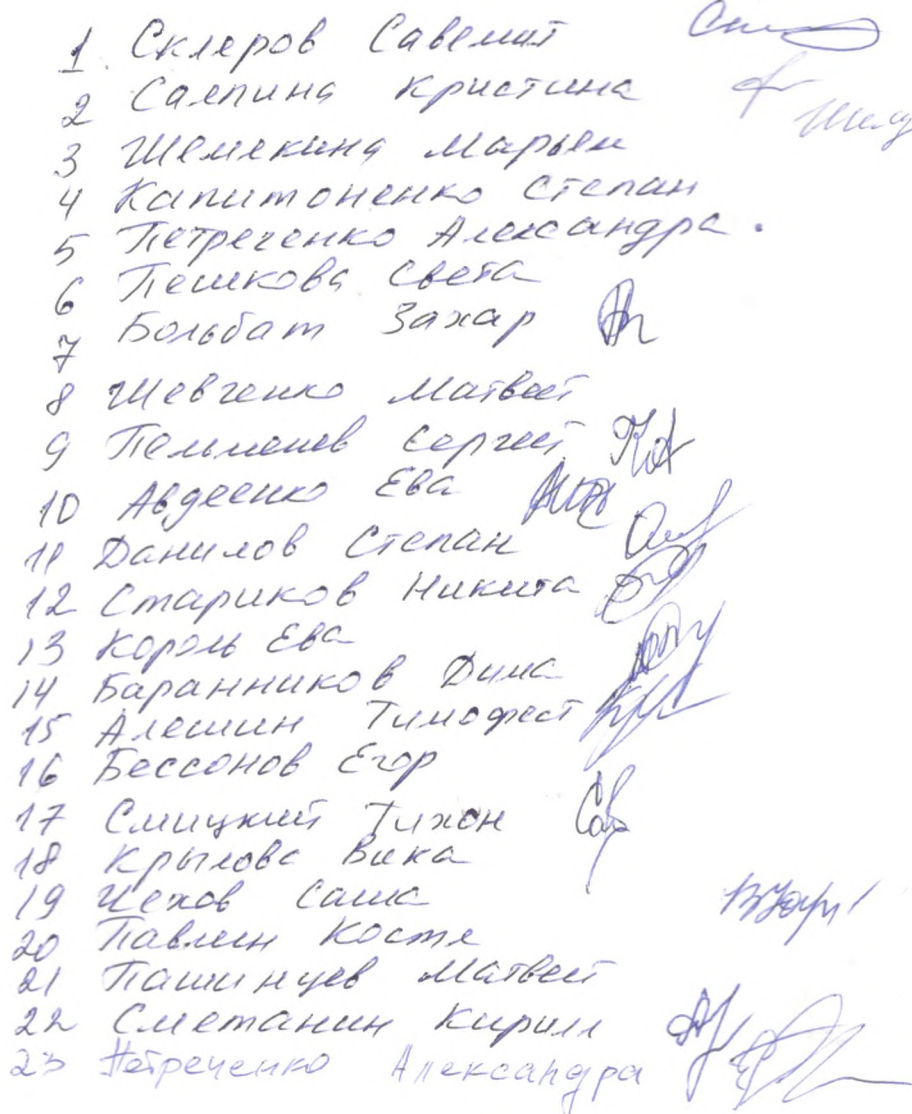 1. Скляров Савелий
2 Саепина Кристина
3 Шемякина Марьям
4 Капитоненко Степан
5 Петреченко Александра.
6 Пешкова Света
7 Больбат Захар
8 Шевченко Матвей
9 Пельменев Сергей
10 Авдеенко Ева
11 Данилов Степан
12 Стариков Никита
13 Король Ева
14 Баранников Дима
15 Алешин Тимофей
16 Бессонов Егор
17 Смицкий Тихон
18 Крылова Вика
19 Чехов Саша
20 Павлин Костя
21 Пашинцев Матвей
22 Сметанин Кирилл
23 Петреченко Александра